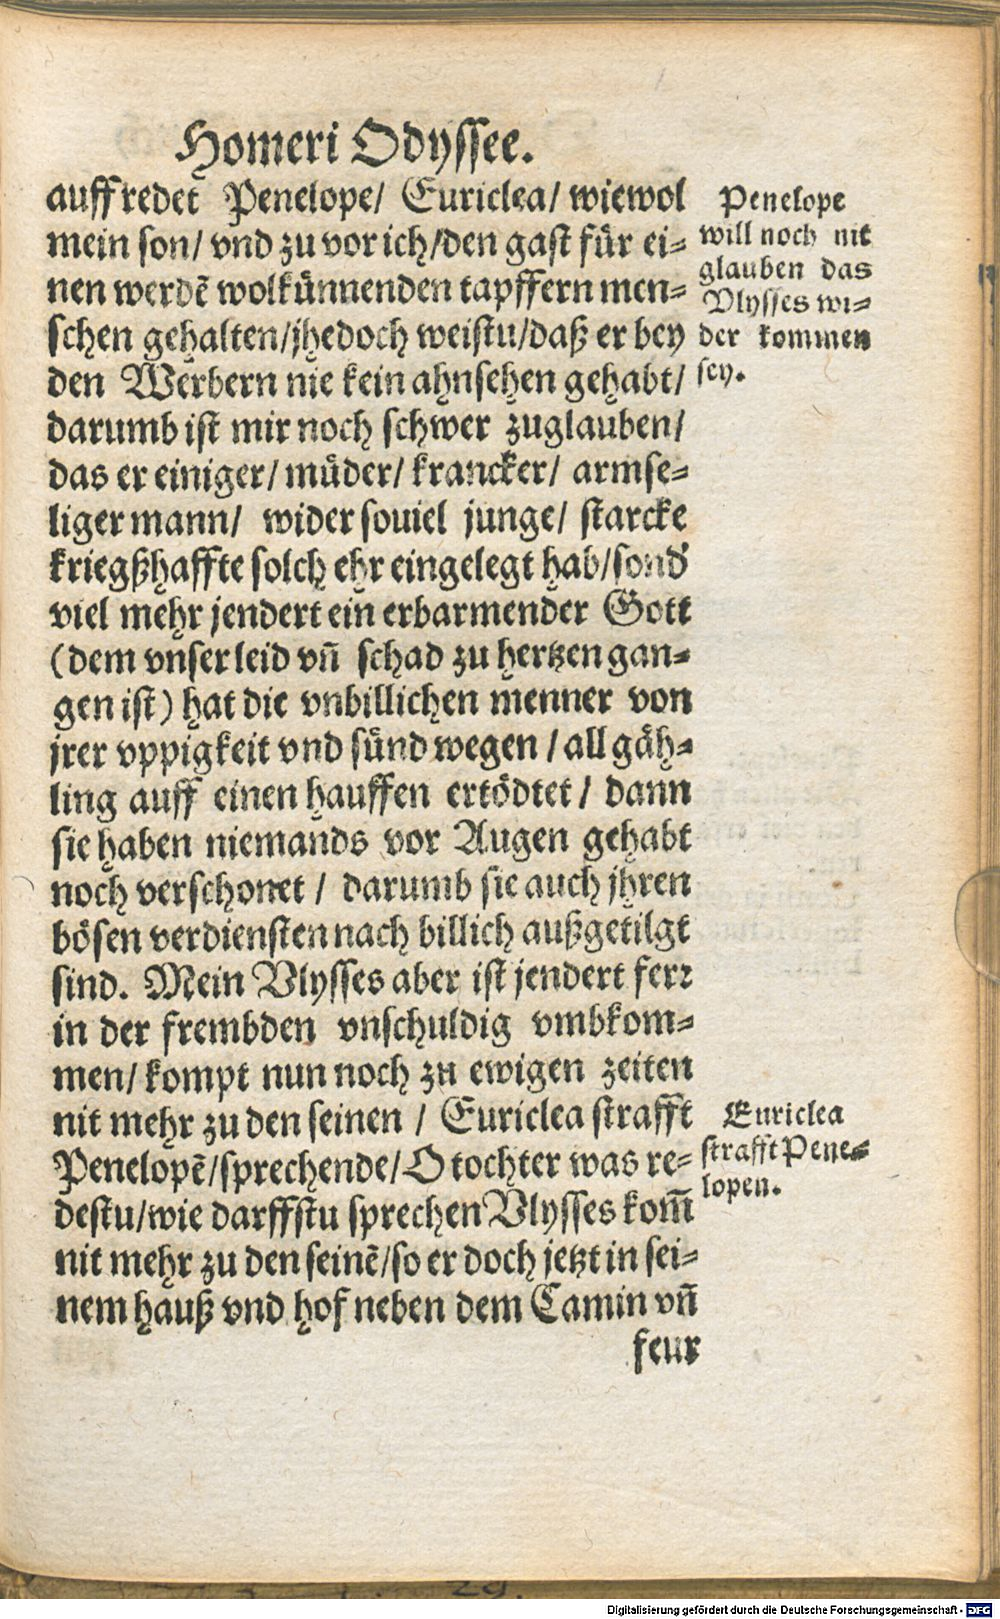 Homeri Odyssee.
auff redet Penelope/ Euriclea/ wiewol
mein son/ vnd zu vor ich/den gast für ei-
nen werdẽ wolkünnenden tapffern men-
schen gehalten/jhedoch weistu/daß er bey
den Werbern nie kein ahnsehen gehabt/
darumb ist mir noch schwer zuglauben/
das er einiger/ müder/ krancker/ armse-
liger mann/ wider souiel junge/ starcke
kriegßhaffte solch ehr eingelegt hab/sond'
viel mehr jendert ein erbarmender Gott
(dem vnser leid vñ schad zu hertzen gan-
gen ist) hat die vnbillichen menner von
jrer vppigkeit vnd sünd wegen / all gäh-
ling auff einen hauffen ertödtet/ dann
sie haben niemands vor Augen gehabt
noch verschonet / darumb sie auch jhren
bösen verdiensten nach billich außgetilgt
sind. Mein Vlysses aber ist jendert ferr
in der frembden vnschuldig vmbkom-
men/ kompt nun noch zu ewigen zeiten
nit mehr zu den seinen / Euriclea strafft
Penelopẽ/sprechende/ O tochter was re-
destu/wie darffstu sprechen Vlysses kom̃
nit mehr zu den seinẽ/so er doch jetzt in sei-
nem hauß vnd hof neben dem Camin vñ
feur
Penelope
will noch nit
glauben das
Vlysses wi-
der kommen
sey.
Euriclea
strafft Pene-
lopen.
Digitalisierung gefördert durch die Deutsche Forschungsgemeinschaft - DFG